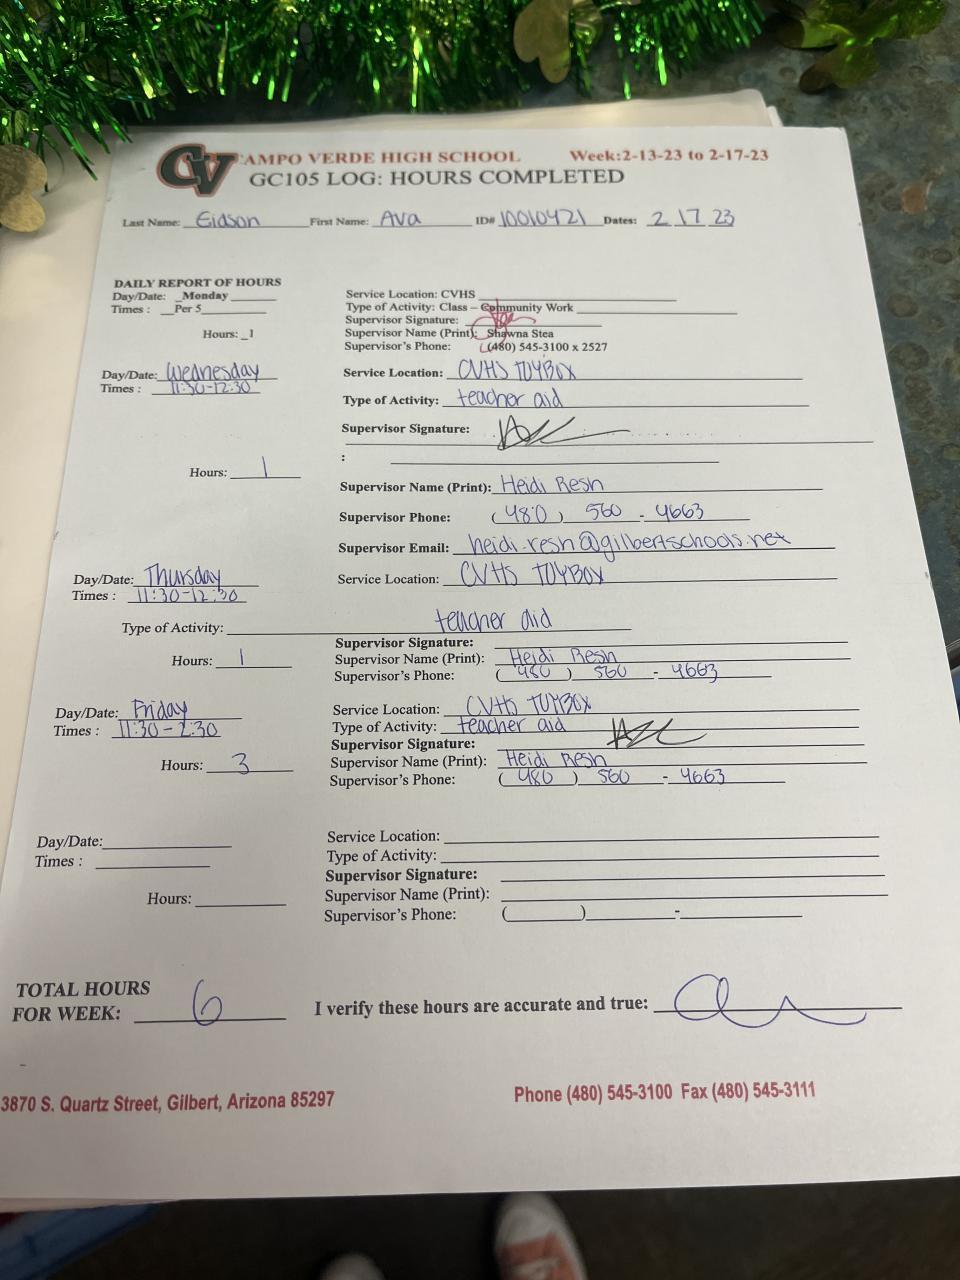 CV CAMPO VERDE HIGH SCHOOL Week:2-13-23 to 2-17-23
GC105 LOG: HOURS COMPLETED
Last Name: Eidson First Name: Ava ID# 10010421 Dates: 2 17 23
DAILY REPORT OF HOURS
Day/Date: _Monday
Times : Per 5
Hours: 1
Service Location: CVHS
Type of Activity: Class – Community Work
Supervisor Signature:
Supervisor Name (Print): Shawna Stea
Supervisor's Phone: (480) 545-3100 x 2527
Day/Date: Wednesday
Times : 11:30-12:30
Hours: 1
Service Location: CVHS TOYBOX
Type of Activity: teacher aid
Supervisor Signature:
:
Supervisor Name (Print): Heidi Resh
Supervisor Phone: (480) 560 - 4663
Supervisor Email: heidi.resh@gilbertschools.net
Day/Date: Thursday
Times : 11:30-12:30
Service Location: CVHS TOYBOX
Type of Activity: teacher aid
Hours: 1
Supervisor Signature:
Supervisor Name (Print): Heidi Resh
Supervisor's Phone: (480) 560 - 4663
Day/Date: Friday
Times : 11:30-2:30
Hours: 3
Service Location: CVHS TOYBOX
Type of Activity: teacher aid
Supervisor Signature:
Supervisor Name (Print): Heidi Resh
Supervisor's Phone: (480) 560 - 4663
Day/Date:
Times :
Hours:
Service Location:
Type of Activity:
Supervisor Signature:
Supervisor Name (Print):
Supervisor's Phone: ( ) -
TOTAL HOURS
FOR WEEK: 6
I verify these hours are accurate and true:
3870 S. Quartz Street, Gilbert, Arizona 85297
Phone (480) 545-3100 Fax (480) 545-3111